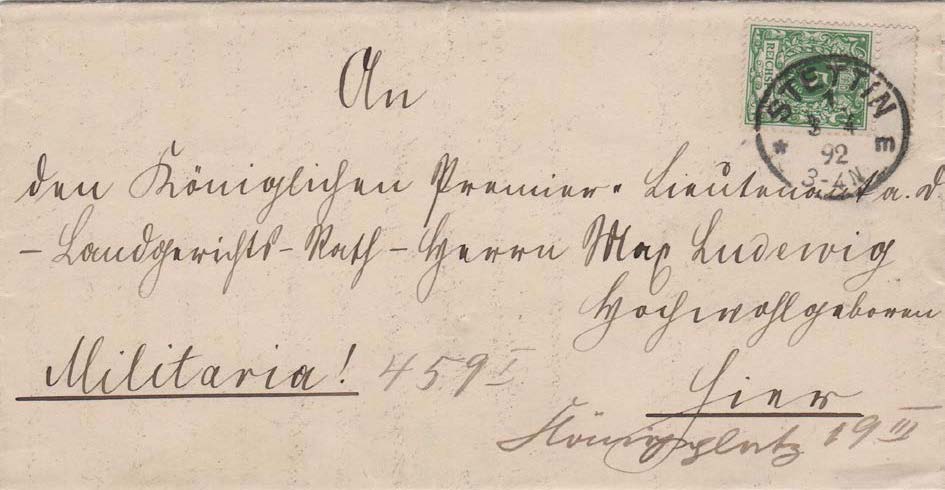 REICHS
5
STETTIN
1
3 4
92
3-4N
* E
An
den Königlichen Premier-Lieutenant a. d.
-Landgerichts-Rath-Herrn Max Ludewig
Hochwohlgeboren
Militaria! 459 I
Hier
Königsplatz 19 III